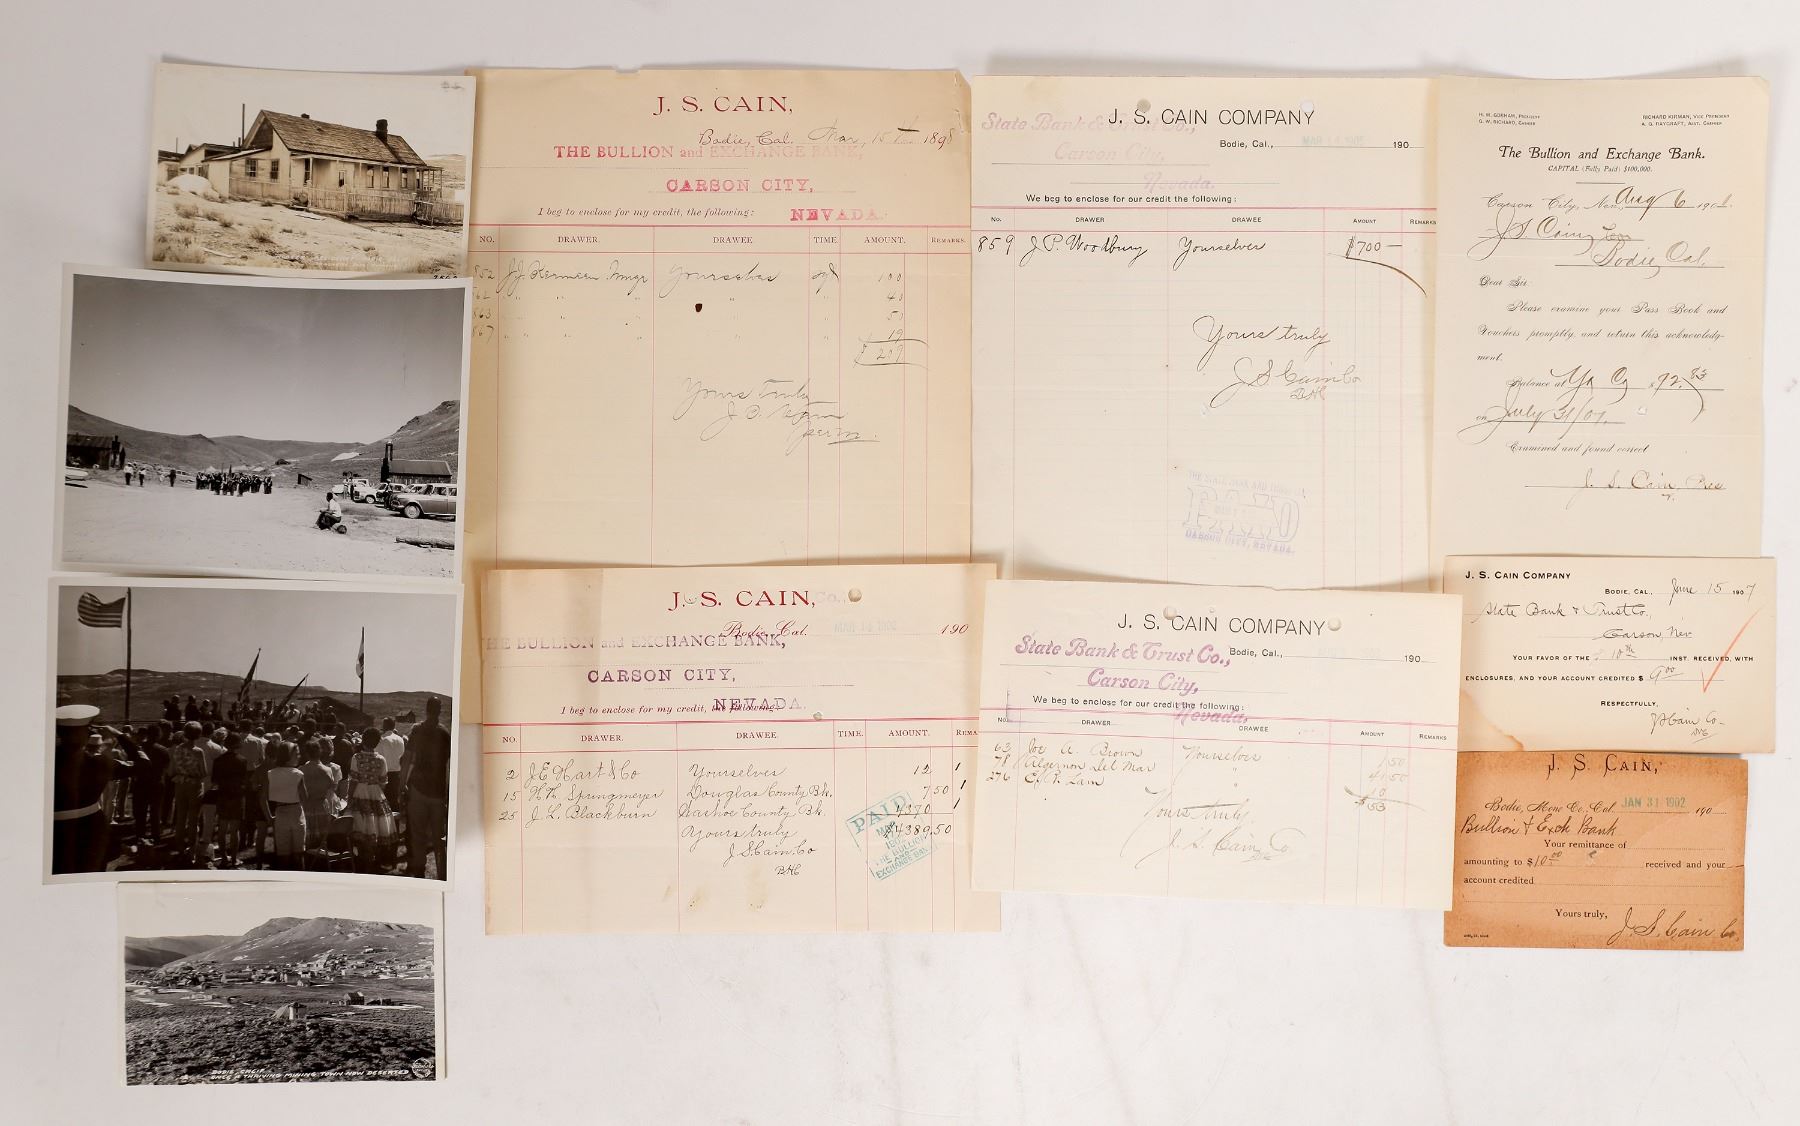 BODIE, CALIF.
ONCE A THRIVING MINING TOWN NOW DESERTED
J. S. CAIN,
Bodie, Cal. Mar, 15th 1898
THE BULLION and EXCHANGE BANK,
CARSON CITY,
I beg to enclose for my credit, the following: NEVADA.
NO. DRAWER. DRAWEE. TIME. AMOUNT. REMARKS.
852 Yourselves 100
40
863 50
867 19
$209
Yours Truly
J. S. CAIN, Co.,
Bodie, Cal. 190
THE BULLION and EXCHANGE BANK,
CARSON CITY,
NEVADA.
I beg to enclose for my credit, the following:
NO. DRAWER. DRAWEE. TIME. AMOUNT. REMA
2 J. E. Hart & Co Yourselves 12 1
15 H. H. Springmeyer Douglas County Bk. 7,50 1
25 J. L. Blackburn Washoe County Bk. 4370 1
Yours truly $4389,50
J. S. Cain Co
BHC
PAID
MAR
THE BULLION
AND
EXCHANGE BANK
J. S. CAIN COMPANY
State Bank & Trust Co.,
Bodie, Cal., MAR 14 1905 190
Carson City,
Nevada.
We beg to enclose for our credit the following:
No. DRAWER DRAWEE AMOUNT REMARKS
859 J. P. Woodbury Yourselves $700—
Yours truly
J S Cain Co
BHC
THE STATE BANK AND TRUST CO.
PAID
CARSON CITY, NEVADA.
J. S. CAIN COMPANY
State Bank & Trust Co.,
Bodie, Cal., 190
Carson City,
We beg to enclose for our credit the following:
Nevada.
No. DRAWER DRAWEE AMOUNT REMARKS
63 Joe A. Brown Yourselves 1,50
78 Algernon Del Mar " 41,50
276 E. P. Lam 10
$53
Yours truly.
J. S. Cain Co
BHC
H. M. GORHAM, PRESIDENT
G. W. RICHARD, CASHIER
RICHARD KIRMAN, VICE PRESIDENT
A. G. RAYCRAFT, ASST. CASHIER
The Bullion and Exchange Bank.
CAPITAL (Fully Paid) $100,000.
Carson City, Nev. Aug 6 1901.
J. S. Cain,
Bodie, Cal.
Dear Sir:
Please examine your Pass Book and
Vouchers promptly, and return this acknowledg-
ment.
Balance at $ 92.83
on July 31/01.
Examined and found correct
J. S. Cain, Pres
J. S. CAIN COMPANY
BODIE, CAL., June 15 1907
State Bank & Trust Co.,
Carson, Nev
YOUR FAVOR OF THE 10th INST. RECEIVED, WITH
ENCLOSURES, AND YOUR ACCOUNT CREDITED $ 9.00
RESPECTFULLY,
J S Cain Co—
BHC
J. S. CAIN,
Bodie, Mono Co., Cal. JAN 31 1902 190
Bullion & Exch Bank
Your remittance of
amounting to $10.00 received and your
account credited
Yours truly,
J. S. Cain Co.